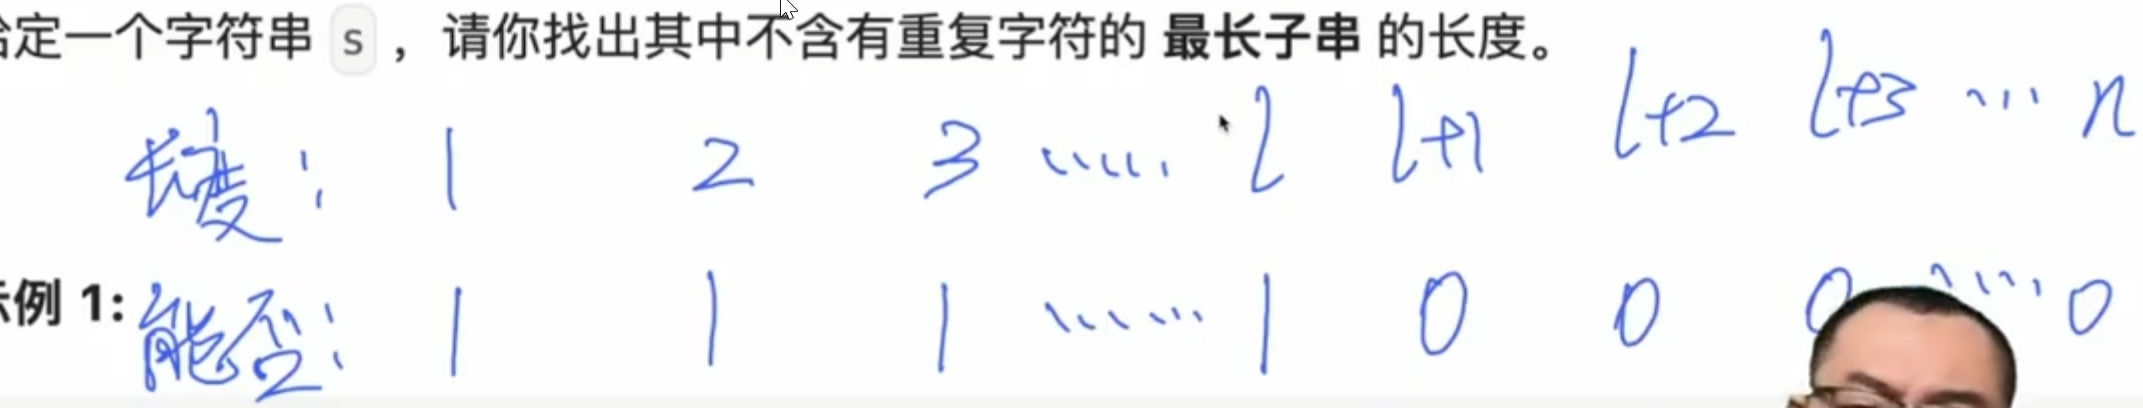 给定一个字符串 s ，请你找出其中不含有重复字符的 最长子串 的长度。
长度： 1 2 3 ...... l l+1 l+2 l+3 ... n
示例 1:
能否： 1 1 1 ...... 1 0 0 0 ..... 0